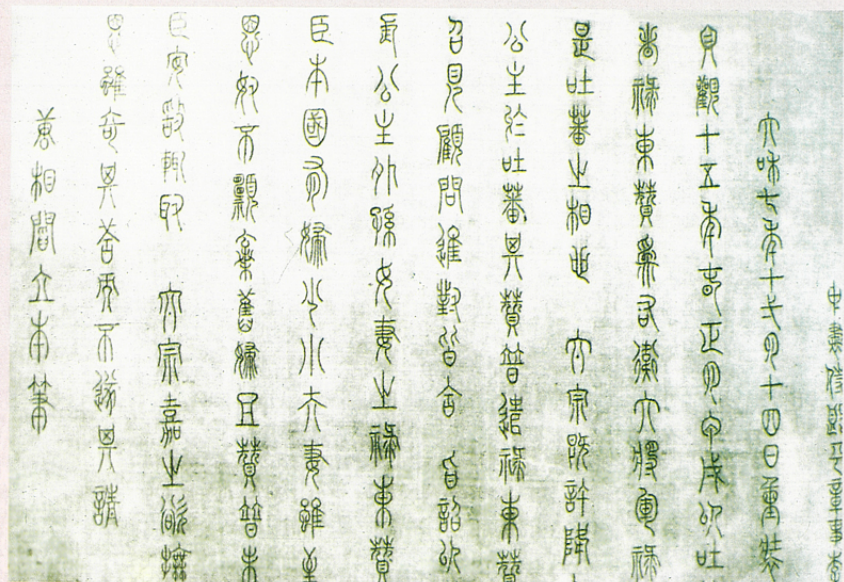 中書侍郎平章事李
大和七年十一月十四日重裝
貞觀十五年春正月甲戌以吐
者祿東贊為右衛大將軍祿
是吐蕃之相也 太宗既許降
公主於吐蕃其贊普遣祿東贊
召見顧問進對皆合 旨詔以
長公主外孫女妻之祿東贊
臣本國有婦少小夫妻雖至
恩奴不願棄舊婦且贊普未
臣安敢輒取 太宗嘉之欲撫
恩雖奇其答而不遂其請
唐相閻立本筆